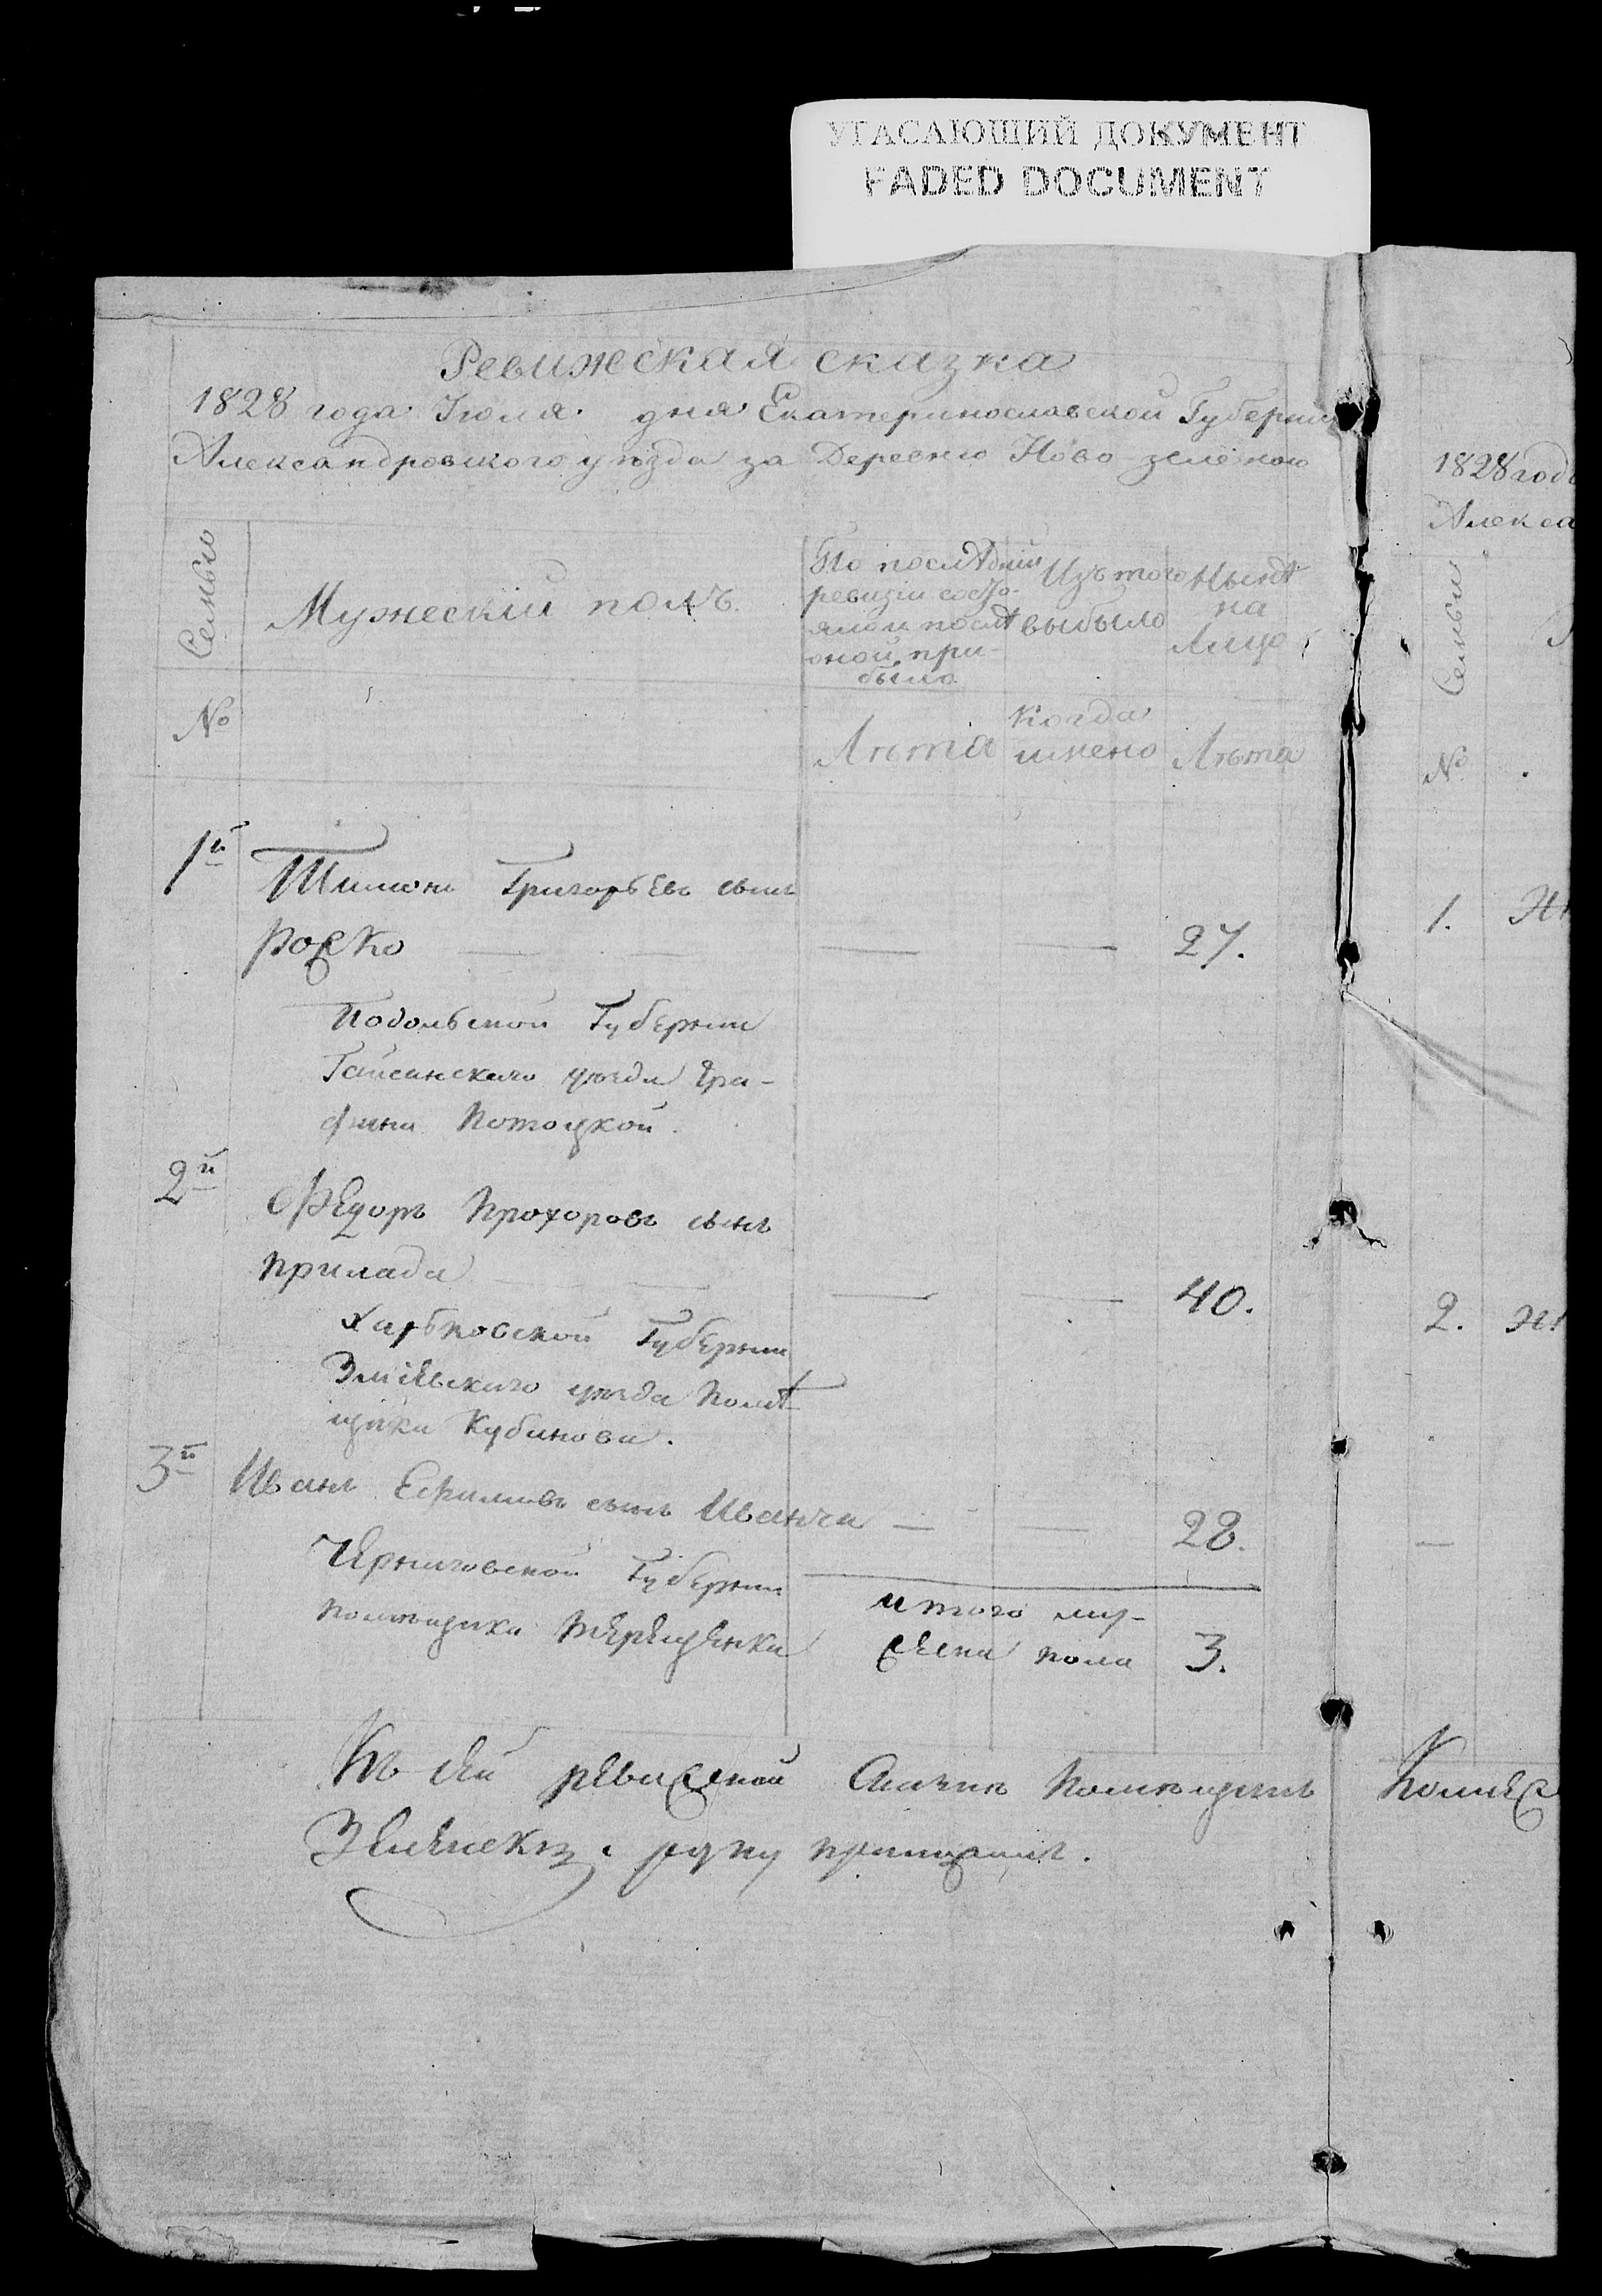 УГАСАЮЩИЙ ДОКУМЕНТ
FADED DOCUMENT
Ревижская сказка
1828 года Июля дня Екатеринославской Губернии
Александровского уѣзда за Деревню Ново зеленою
Семьи
Мужескій полъ
По послѣдній
ревизіи состо-
яли и послѣ
оной при-
было
Изъ того
выбыло
Нынѣ
на
Лицо
№
Лѣта
Когда
имено
Лѣта
1й
Тимонъ Григорьевъ сынъ
27.
Подольской Губернии
Гайсинскаго уезда Гра-
фини Потоцкой.
2й
Федоръ Прохоровъ сынъ
Прилада
40.
Харьковской Губернии
Зміевскаго уезда Помѣ
щика Кубинова.
3й
Иванъ Ефимовъ сынъ
28.
Черниговской Губернии
помещика Терещенки
итого му-
жеска пола 3.
Къ сей ревижской Сказки Помещикъ
руку приложилъ.
1828 года
Алекса
Семьи
№
1.
2.